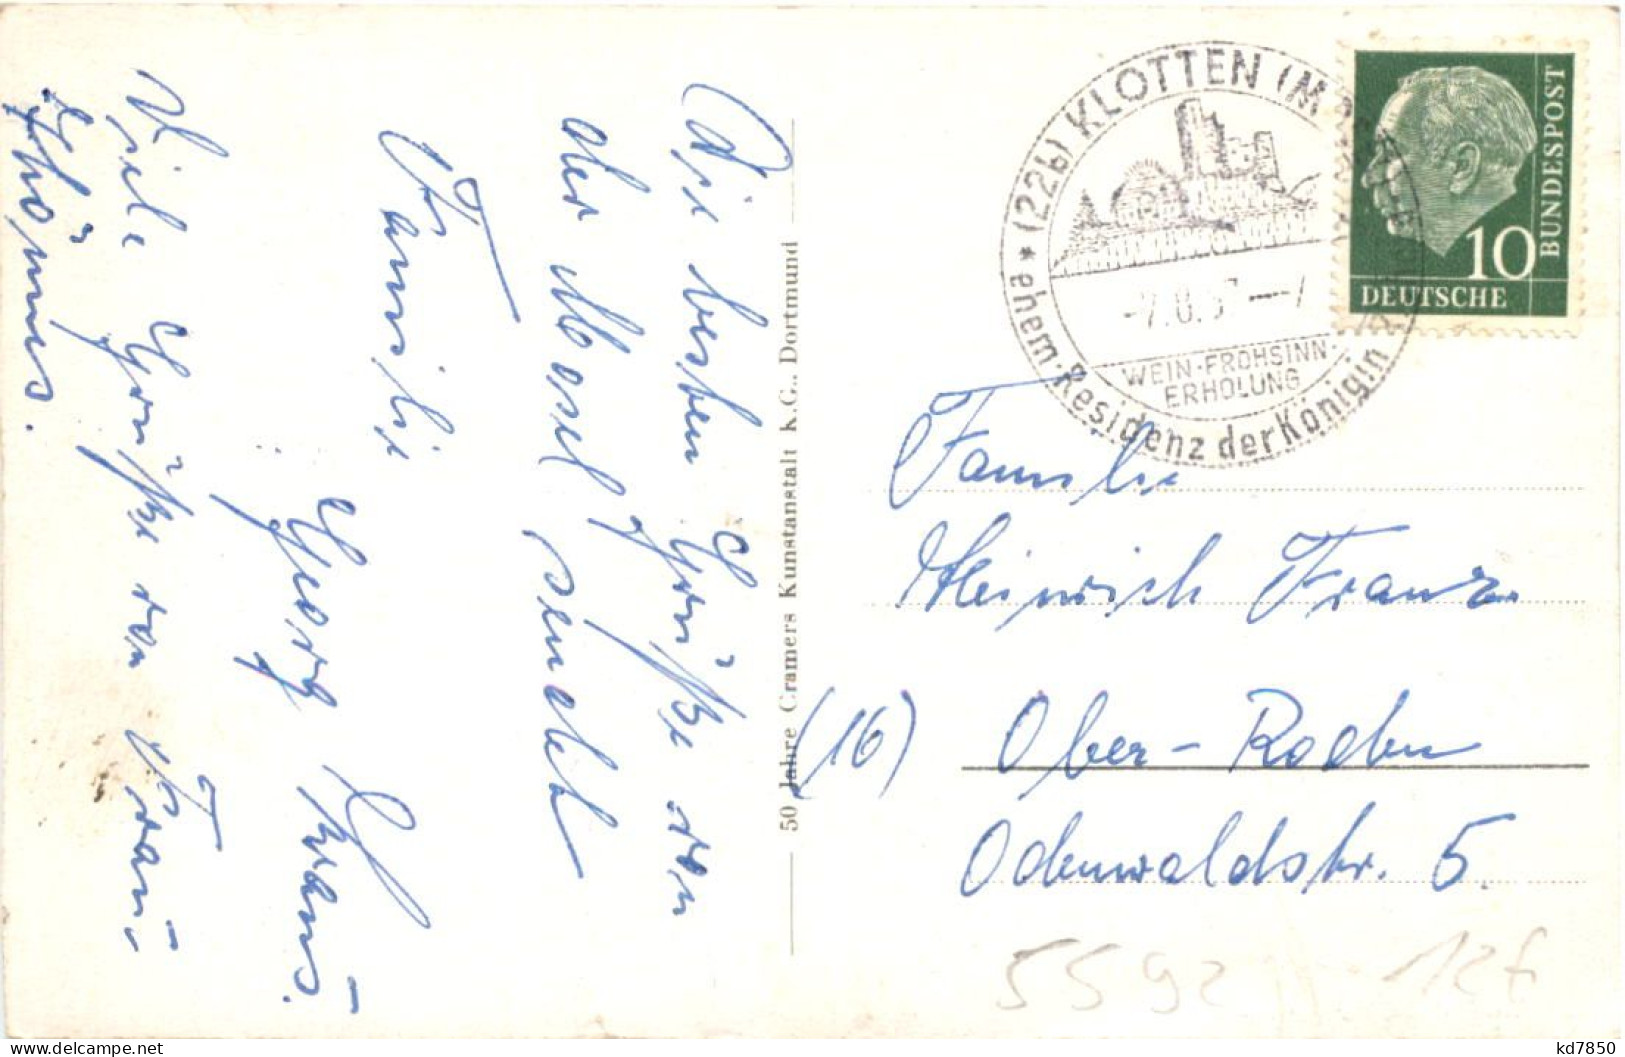 Die besten Grüße von
der Mosel sendet
Familie
Georg Kraus.
Viele Grüße von Frau
50 Jahre Cramers Kunstanstalt K.G., Dortmund
* (22b) KLOTTEN (MOSEL)
WEIN-FROHSINN-
ERHOLUNG
ehem. Residenz der Königin
BUNDESPOST
10
DEUTSCHE
Familie
Heinrich Franz
(16) Ober-Roden
Odenwaldstr. 5.
5592
12f
delcampe.net
kd7850